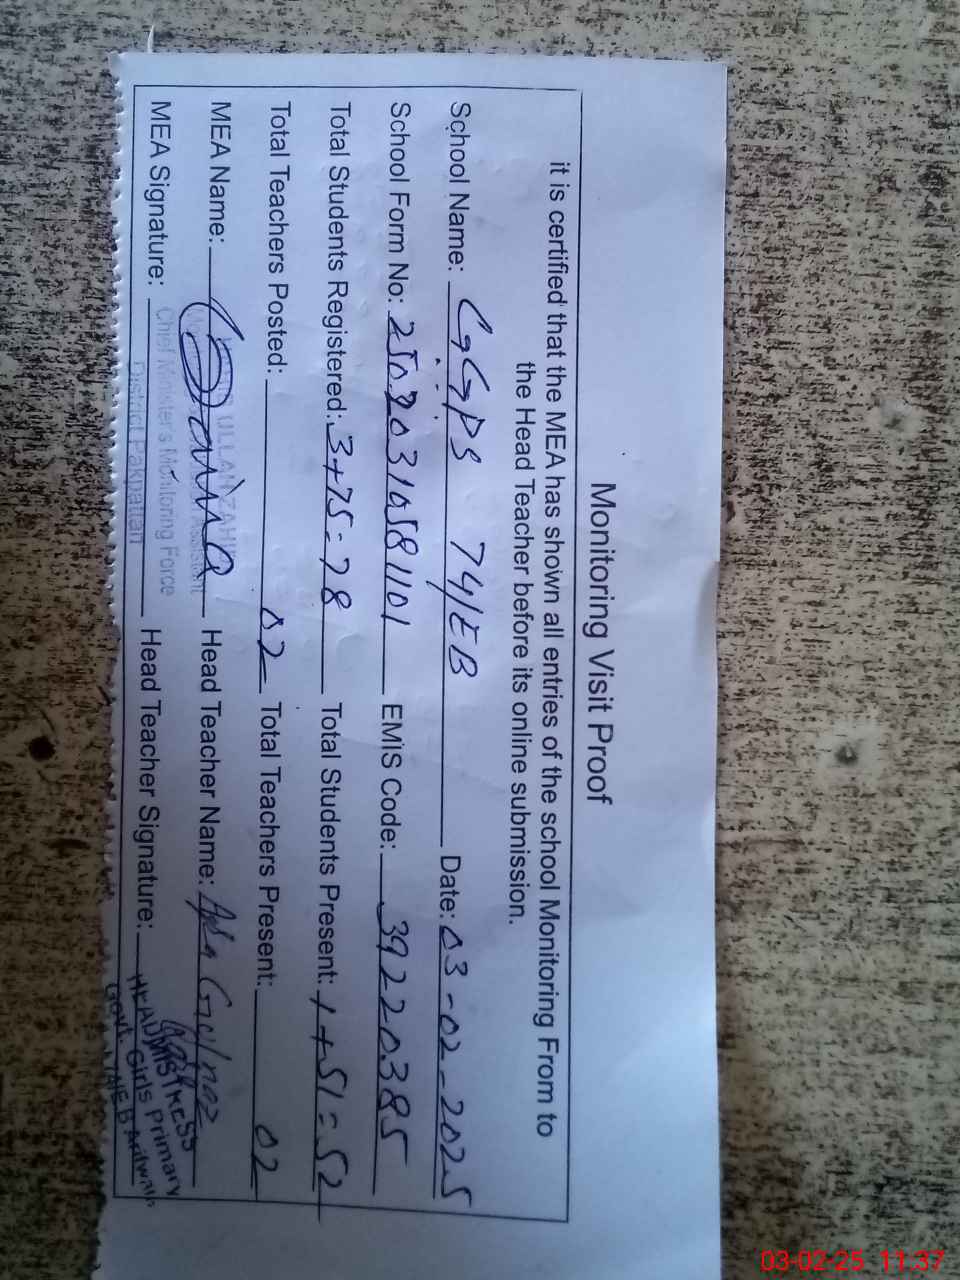 Monitoring Visit Proof
it is certified that the MEA has shown all entries of the school Monitoring From to
the Head Teacher before its online submission.
School Name: GGPS 74/EB Date: 03-02-2025
School Form No: EMIS Code: 39220385
Total Students Registered: 3+75=78 Total Students Present: 1+51=52
Total Teachers Posted: 02 Total Teachers Present: 02
MEA Name: Head Teacher Name: Gulnaz
ULLAH ZAHID
Chief Minister's Monitoring Force
District Pakpattan
MEA Signature: Head Teacher Signature:
HEADMISTRESS
Govt. Girls Primary
03-02-25 11:37